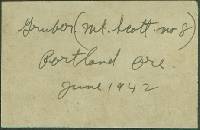 Gruber (Mt. Scott. no 8)
Portland Ore.
June 1942